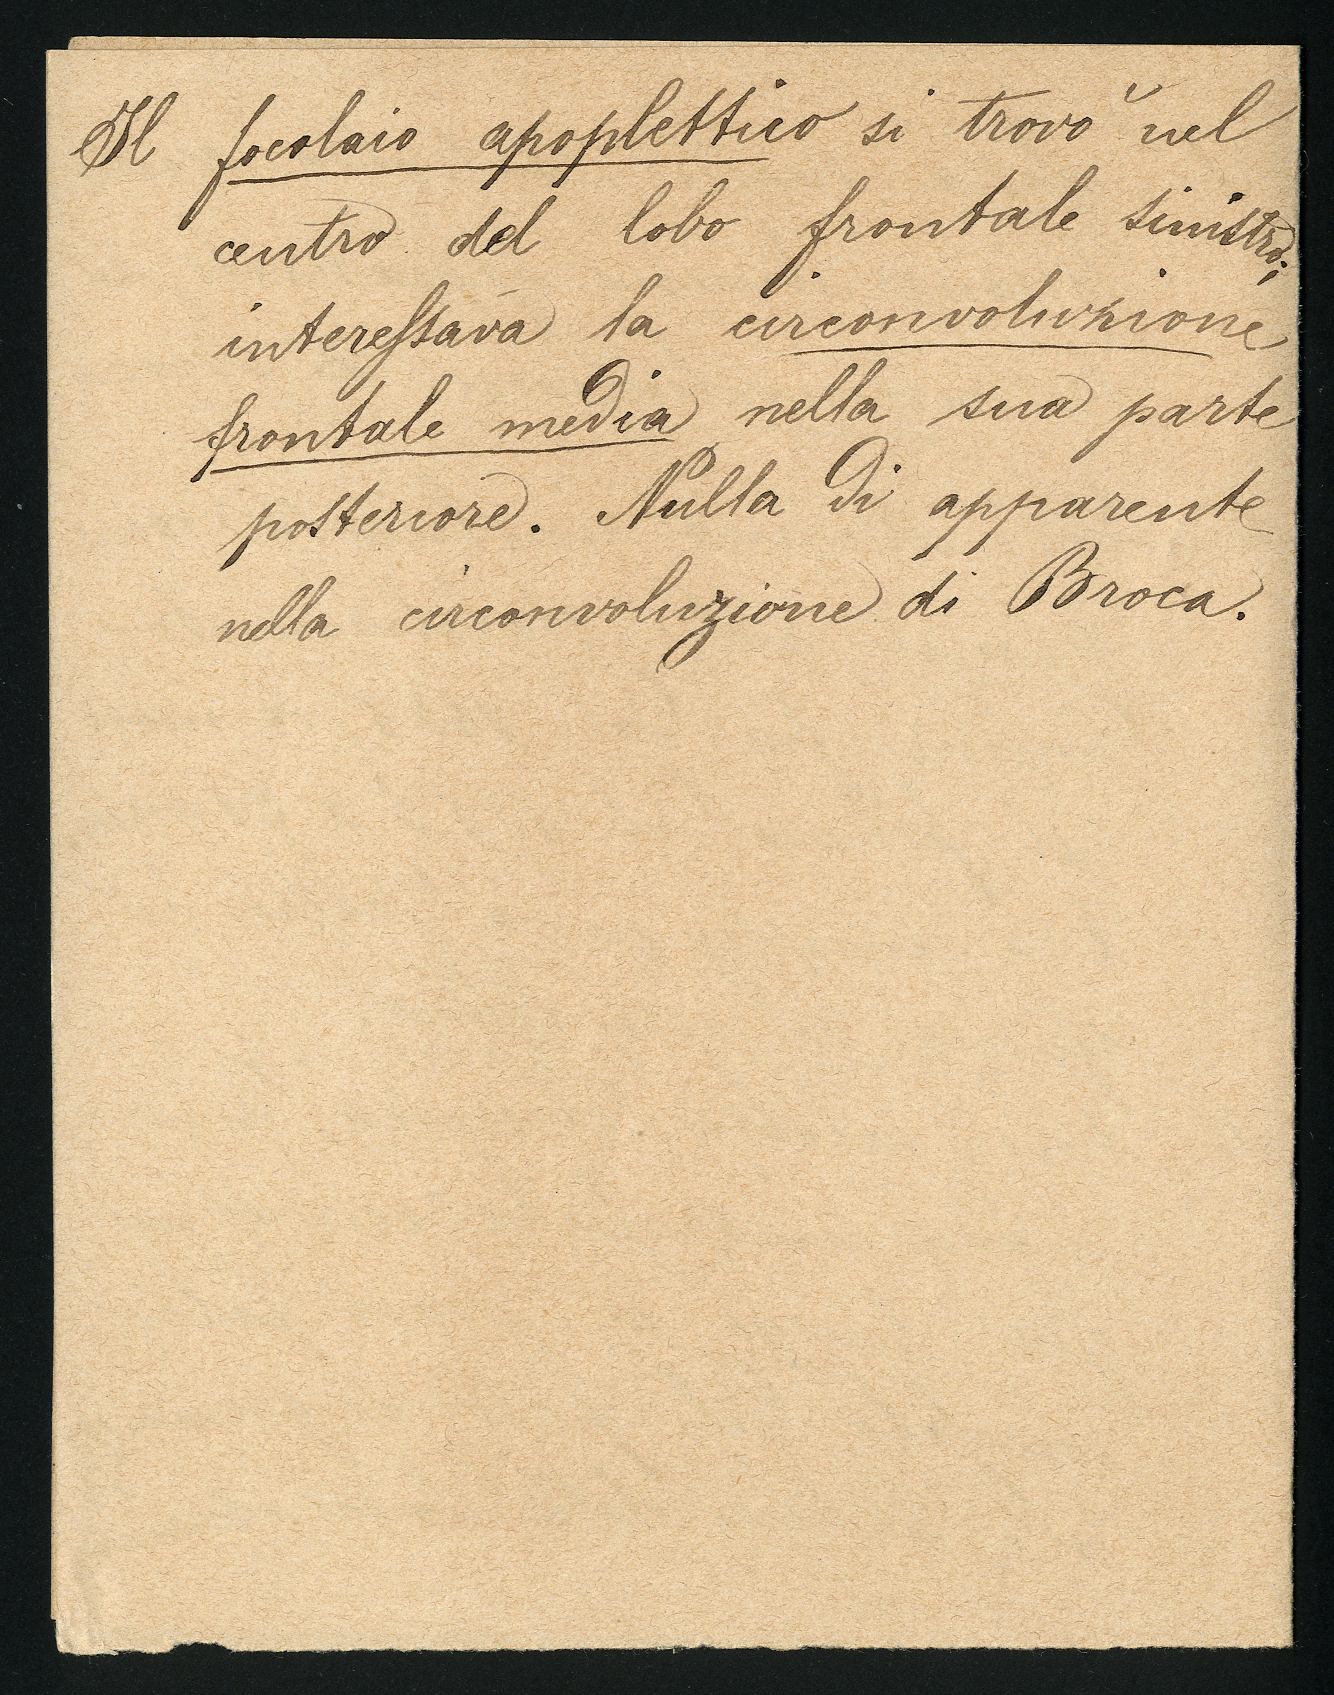 Il focolaio apoplettico si trovò nel
centro del lobo frontale sinistro;
interessava la circonvoluzione
frontale media nella sua parte
posteriore. Nulla di apparente
nella circonvoluzione di Broca.